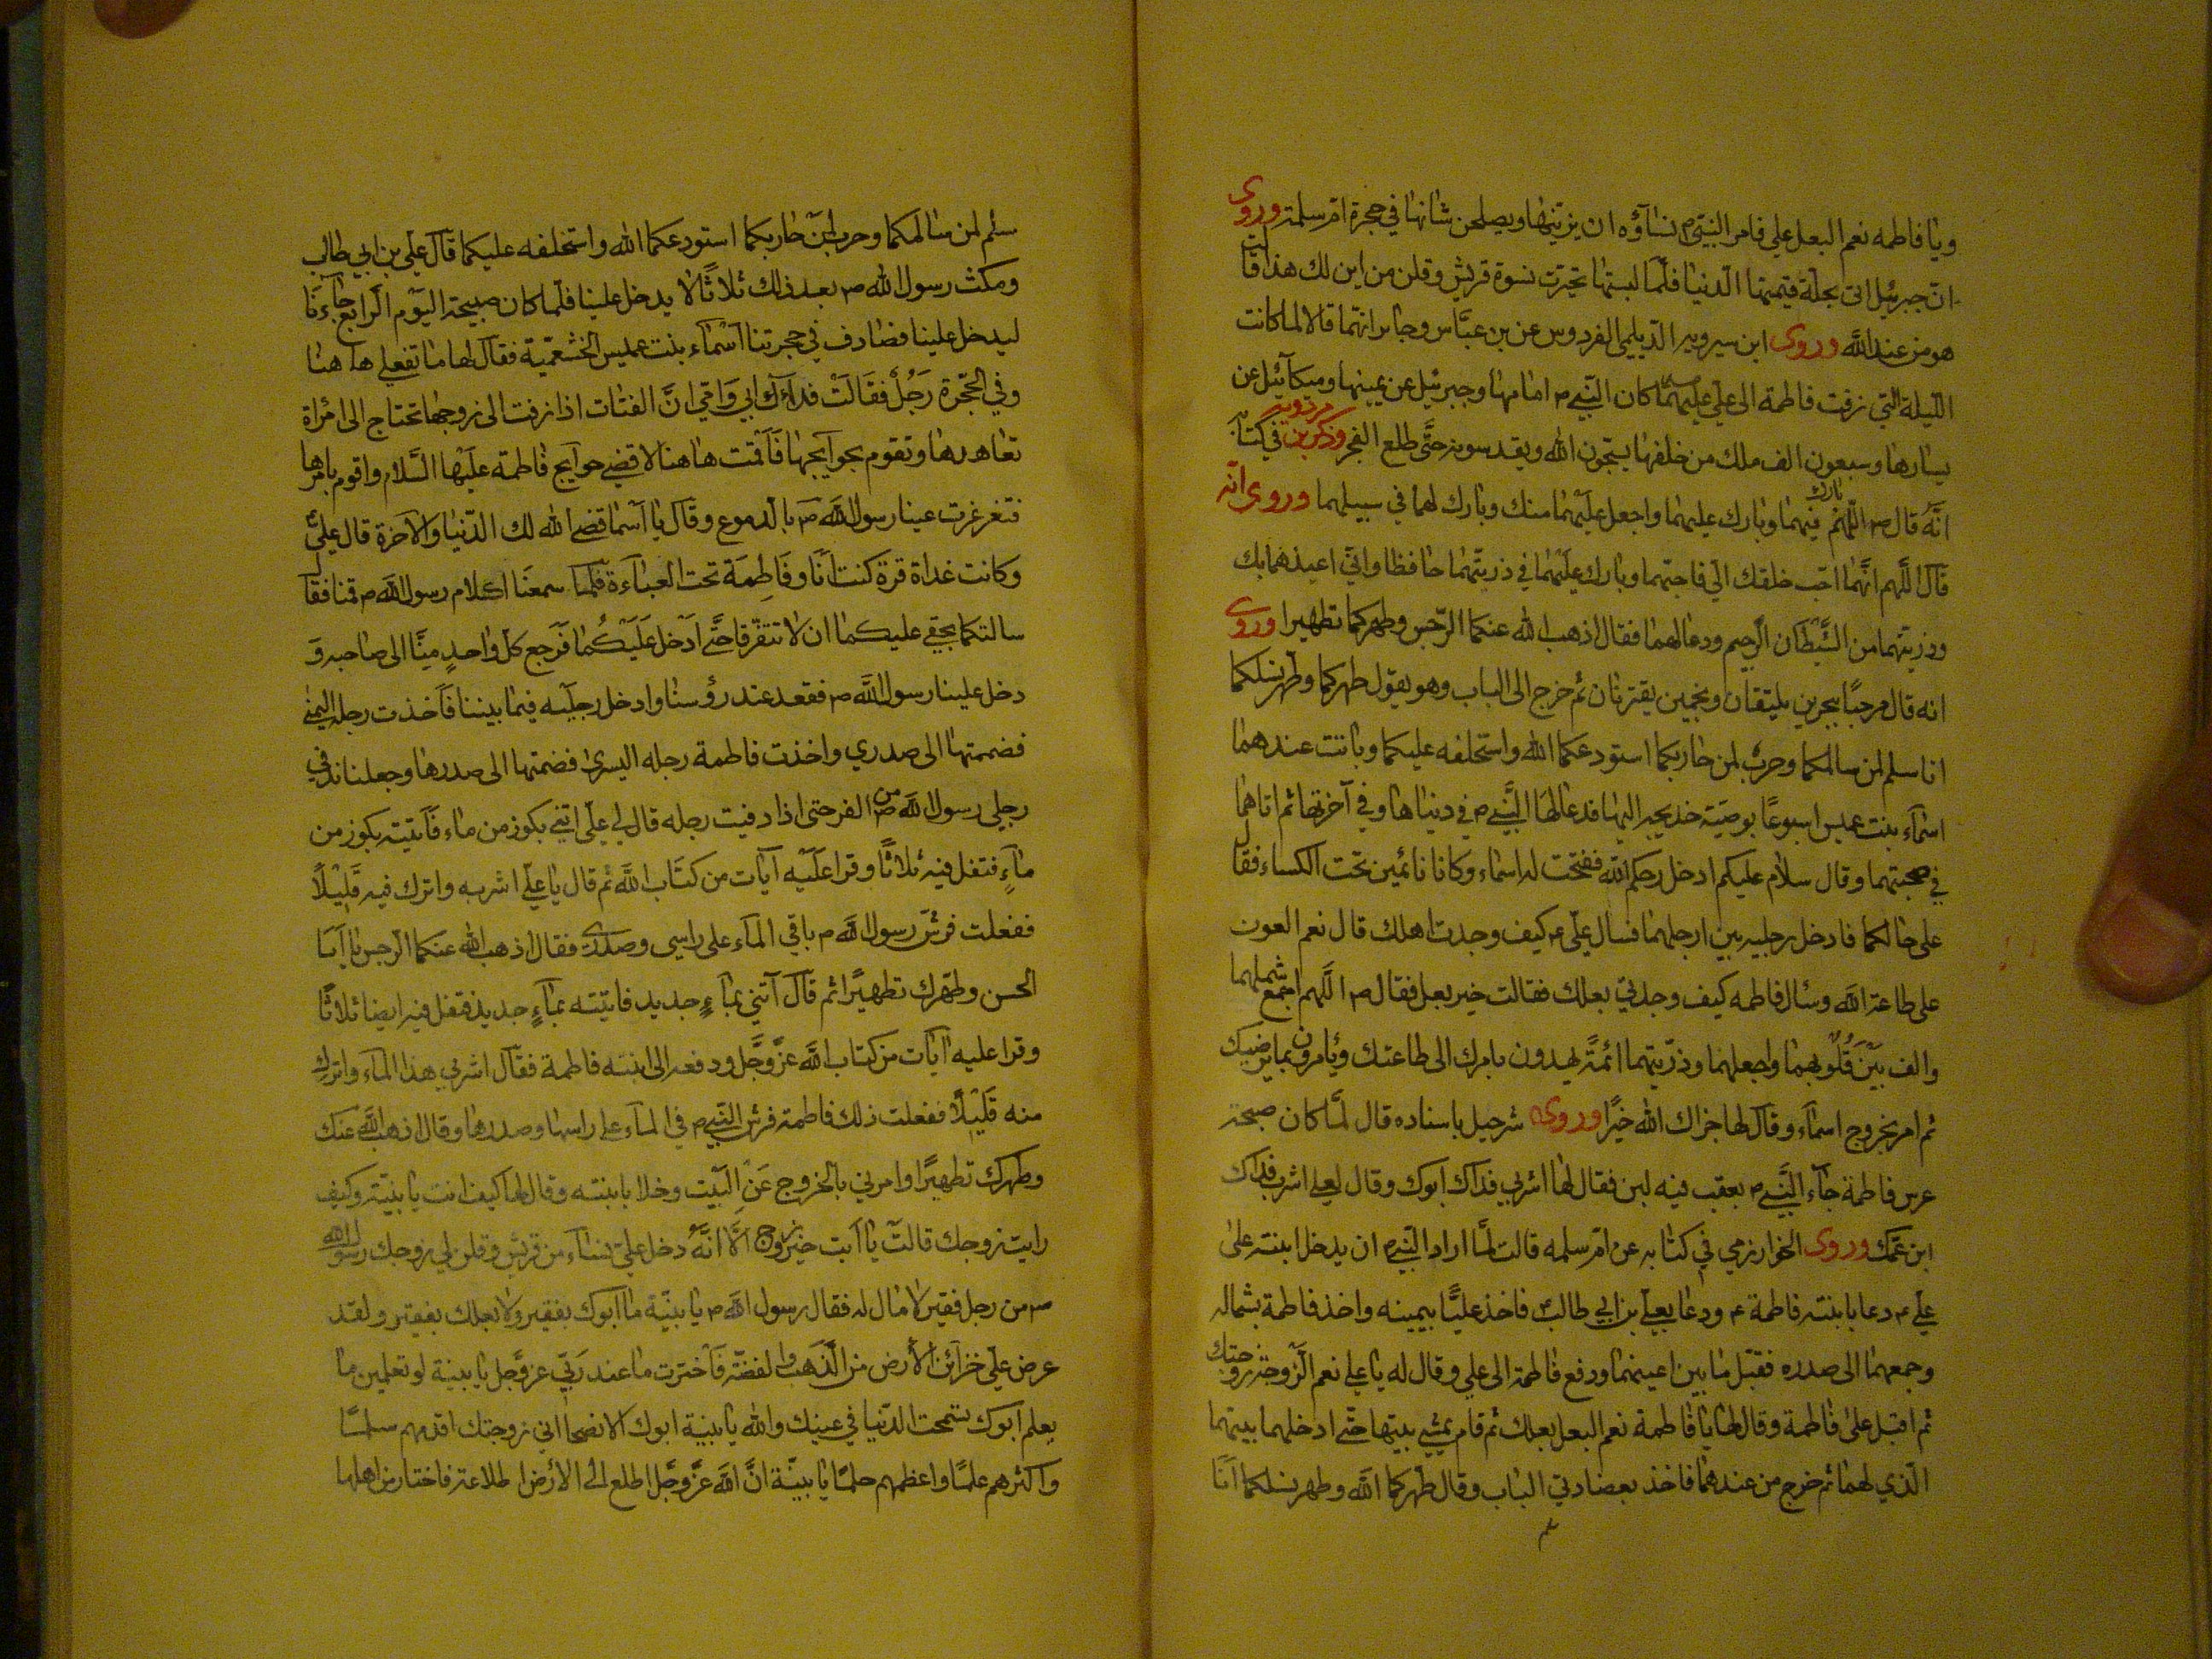 ويا فاطمه نعم البعل علي فامر النبيّ م نساؤه ان يزيّنّها ويصلحن شانها في حجرة امّ سلمة وروى
انّ جبرئيل اتى بحلة قيمتها الدنيا فلمّا لبستها تحيّرت نسوة قريش وقلن من اين لك هذا قالت
هو من عند اللّه وروى ابن سيرويه الدّيلمي الفردوس عن بن عبّاس وجابر انّهما قالا لما كانت
اللّيلة التي زفت فاطمة الى علي عليهما كان النّبي م امامها وجبرئيل عن يمينها وميكآئيل عن
يسارها وسبعون الف ملك من خلفها يسبّحون اللّه ويقدسونه حتّى طلع الفجر وذكر بن مردويه في كتابه
انّه قال م اللّهم بارك فيهما وبارك عليهما واجعل عليهما منك وبارك لهما في سبيلهما وروى انّه
قال اللّهم انّهما احبّ خلقك اليّ فاحبّهما وبارك عليهما في ذريتهما حافظا وانّي اعيذهما بك
وذريتهما من الشّيطان الرجيم ودعا لهما فقال اذهب الله عنكما الرّجس وطهركما تطهيرا وروى
انه قال مرحبًا ببحرين يلتقيان ونجمين يقترنان ثم خرج الى الباب وهو يقول طهركما وطهر نسلكما
انا سلم لمن سالمكما وحربٌ لمن حاربكما استودعكما الله واستخلفه عليكما وباتت عندهما
اسمآء بنت عميس اسبوعًا بوصيّة خديجه اليها فدعا لها النّبي م في دنياها وفي آخرتها ثم اتاهما
في صحبتهما وقال سلام عليكم ادخل رحمكم اللّه ففتحت له اسماء وكانا نائمين تحت الكساء فقال
على حالكما فادخل رجليه بين ارجلهما فسال علي ع كيف وجدت اهلك قال نعم العون
على طاعة اللّه وسال فاطمه كيف وجدتي بعلك فقالت خير بعل فقال م اللّهم اجمع شملهما
والف بين قُلُوبهما واجعلهما وذرّيتهما ائمّةً يهدون بامرك الى طاعتك ويامرون بما يرضيك
ثم امر بخروج اسمآء وقال لها جزاك الله خيرًا وروى شرحبيل باسناده قال لمّا كان صبحة
عرس فاطمة جآء النّبي م بعقب فيه لبن فقال لها اشربي فداك ابوك وقال لعلي اشرب فداك
ابن عمّك وروى الخوارزمي في كتابه عن امّ سلمه قالت لمّا اراد النّبي م ان يدخل ابنته على
علي ع دعا بابنته فاطمة ع ودعا بعلي بن ابي طالب ع فاخذ عليًّا بيمينه واخذ فاطمة بشماله
وجمعهما الى صدره فقبّل ما بين اعينهما ودفع فاطمة الى علي وقال له يا علي نعم الزّوجة زوجتك
ثم اقبل على فاطمة وقال لها يا فاطمة نعم البعل بعلك ثم قام يمشي بينها حتّى ادخلهما بيتهما
الّذي لهما ثم خرج من عندهما فاخذ بعضادتي الباب وقال طهركما اللّه وطهر نسلكما انا
سلم لمن سالمكما وحرب لمن حاربكما استودعكما الله واستخلفه عليكما قال علي بن ابي طالب
ومكث رسول الله م بعد ذلك ثلاثًا لا يدخل علينا فلما كان صبيحة اليوم الرابع جآءنا
ليدخل علينا فصادف في حجرتنا اسمآء بنت عميس الخثعميّة فقال لها ما تفعلي هاهنا
وفي الحجرة رَجُلٌ فقالت فداك ابي وامّي انّ الفتات اذا زفت الى زوجها تحتاج الى امراة
تعاهدها وتقوم بحوآيجها فاقمت هاهنا لاقضي حوايج فاطمة عليها السّلام واقوم بامرها
فتغرغرت عينا رسول اللّه م بالدموع وقال يا اسما قضى الله لك الدّنيا والآخرة قال عليّ
وكانت غداة قرة كنت انا وفاطمة تحت العباءة فلمّا سمعنا كلام رسول اللّه م قمنا فقال
سالتكما بحقي عليكما ان لا تتفرّقا حتّى ادخل عليكما فرجع كل واحدٍ منّا الى صاحبه و
دخل علينا رسول اللّه م فقعد عند رؤسنا وادخل رجليه فيما بيننا فاخذت رجله اليمنى
فضممتها الى صدري واخذت فاطمة رجله اليسرى فضمتها الى صدرها وجعلنا ندفي
رجلي رسول اللّه ص من القر حتى اذا دفيت رجله قال لي علي اتني بكوز من ماء فاتيته بكوز من
مآءٍ فتفل فيه ثلاثًا وقرا عليه آيات من كتاب اللّه ثم قال يا علي اشربه واترك فيه قليلًا
ففعلت فرشّ رسول اللّه م باقي المآء على راسي وصدري فقال اذهب الله عنكما الرجس يا ابا
الحسن وطهرك تطهيرًا ثم قال آتني بمآءٍ جديد فاتيته بمآءٍ جديد فتفل فيه ايضا ثلاثًا
وقرا عليه آيات من كتاب اللّه عزّ وجّل ودفعه الى ابنته فاطمة فقال اشربي هذا المآء واتركي
منه قليلًا ففعلت ذلك فاطمة فرش النّبي م في المآء على راسها وصدرها وقال اذهب اللّه عنك
وطهرك تطهيرًا وامرني بالخروج عن البيت وخلا بابنته وقال لها كيف انت يا بنيّة وكيف
رايت زوجك قالت يا ابت خير زوج الّا انّه دخل عليّ نساء من قريش وقلن لي زوجك رسول الله
م من رجل فقير لا مال له فقال رسول اللّه م يا بنيّة ما ابوك بفقير ولا بعلك بفقير ولقد
عرض علي خزائن الأرض من الذّهب والفضّة فاخترت ما عند ربّي عز وجّل يا بنية لو تعلمين ما
يعلم ابوك لسمحت الدّنيا في عينيك والله يا بنية ابوك الا نصحا اني زوجتك اقدمهم سلمًا
واكثرهم علمًا واعظمهم حلمًا يا بنيّة انّ اللّه عزّ وجّل اطلع الى الأرض اطلاعة فاختار من اهلها